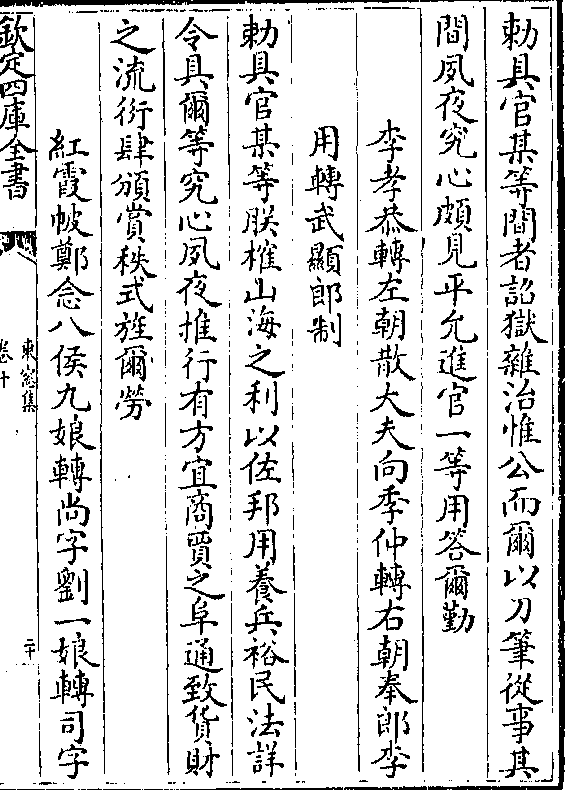 勅具官某等間者詔獄雜治惟公而爾以刀筆從事其
間夙夜究心頗見平允進官一等用答爾勤
李孝恭轉左朝散大夫向季仲轉右朝奉郎李
用轉武顯郎制
勅具官某等朕榷山海之利以佐邦用養兵裕民法詳
令具爾等究心夙夜推行有方宜商賈之阜通致貨財
之流衍肆頒賞秩式旌爾勞
紅霞帔鄭念八侯九娘轉尚字劉一娘轉司字
欽定四庫全書
東窓集
卷十
二十